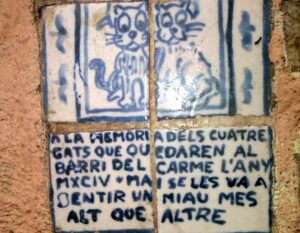 A LA MEMORIA DELS CUATRE
GATS QUE QUEDAREN AL
BARRI DEL CARME L'ANY
MXCIV · MAI SE LES VA A
SENTIR UN MIAU MES
ALT QUE ALTRE